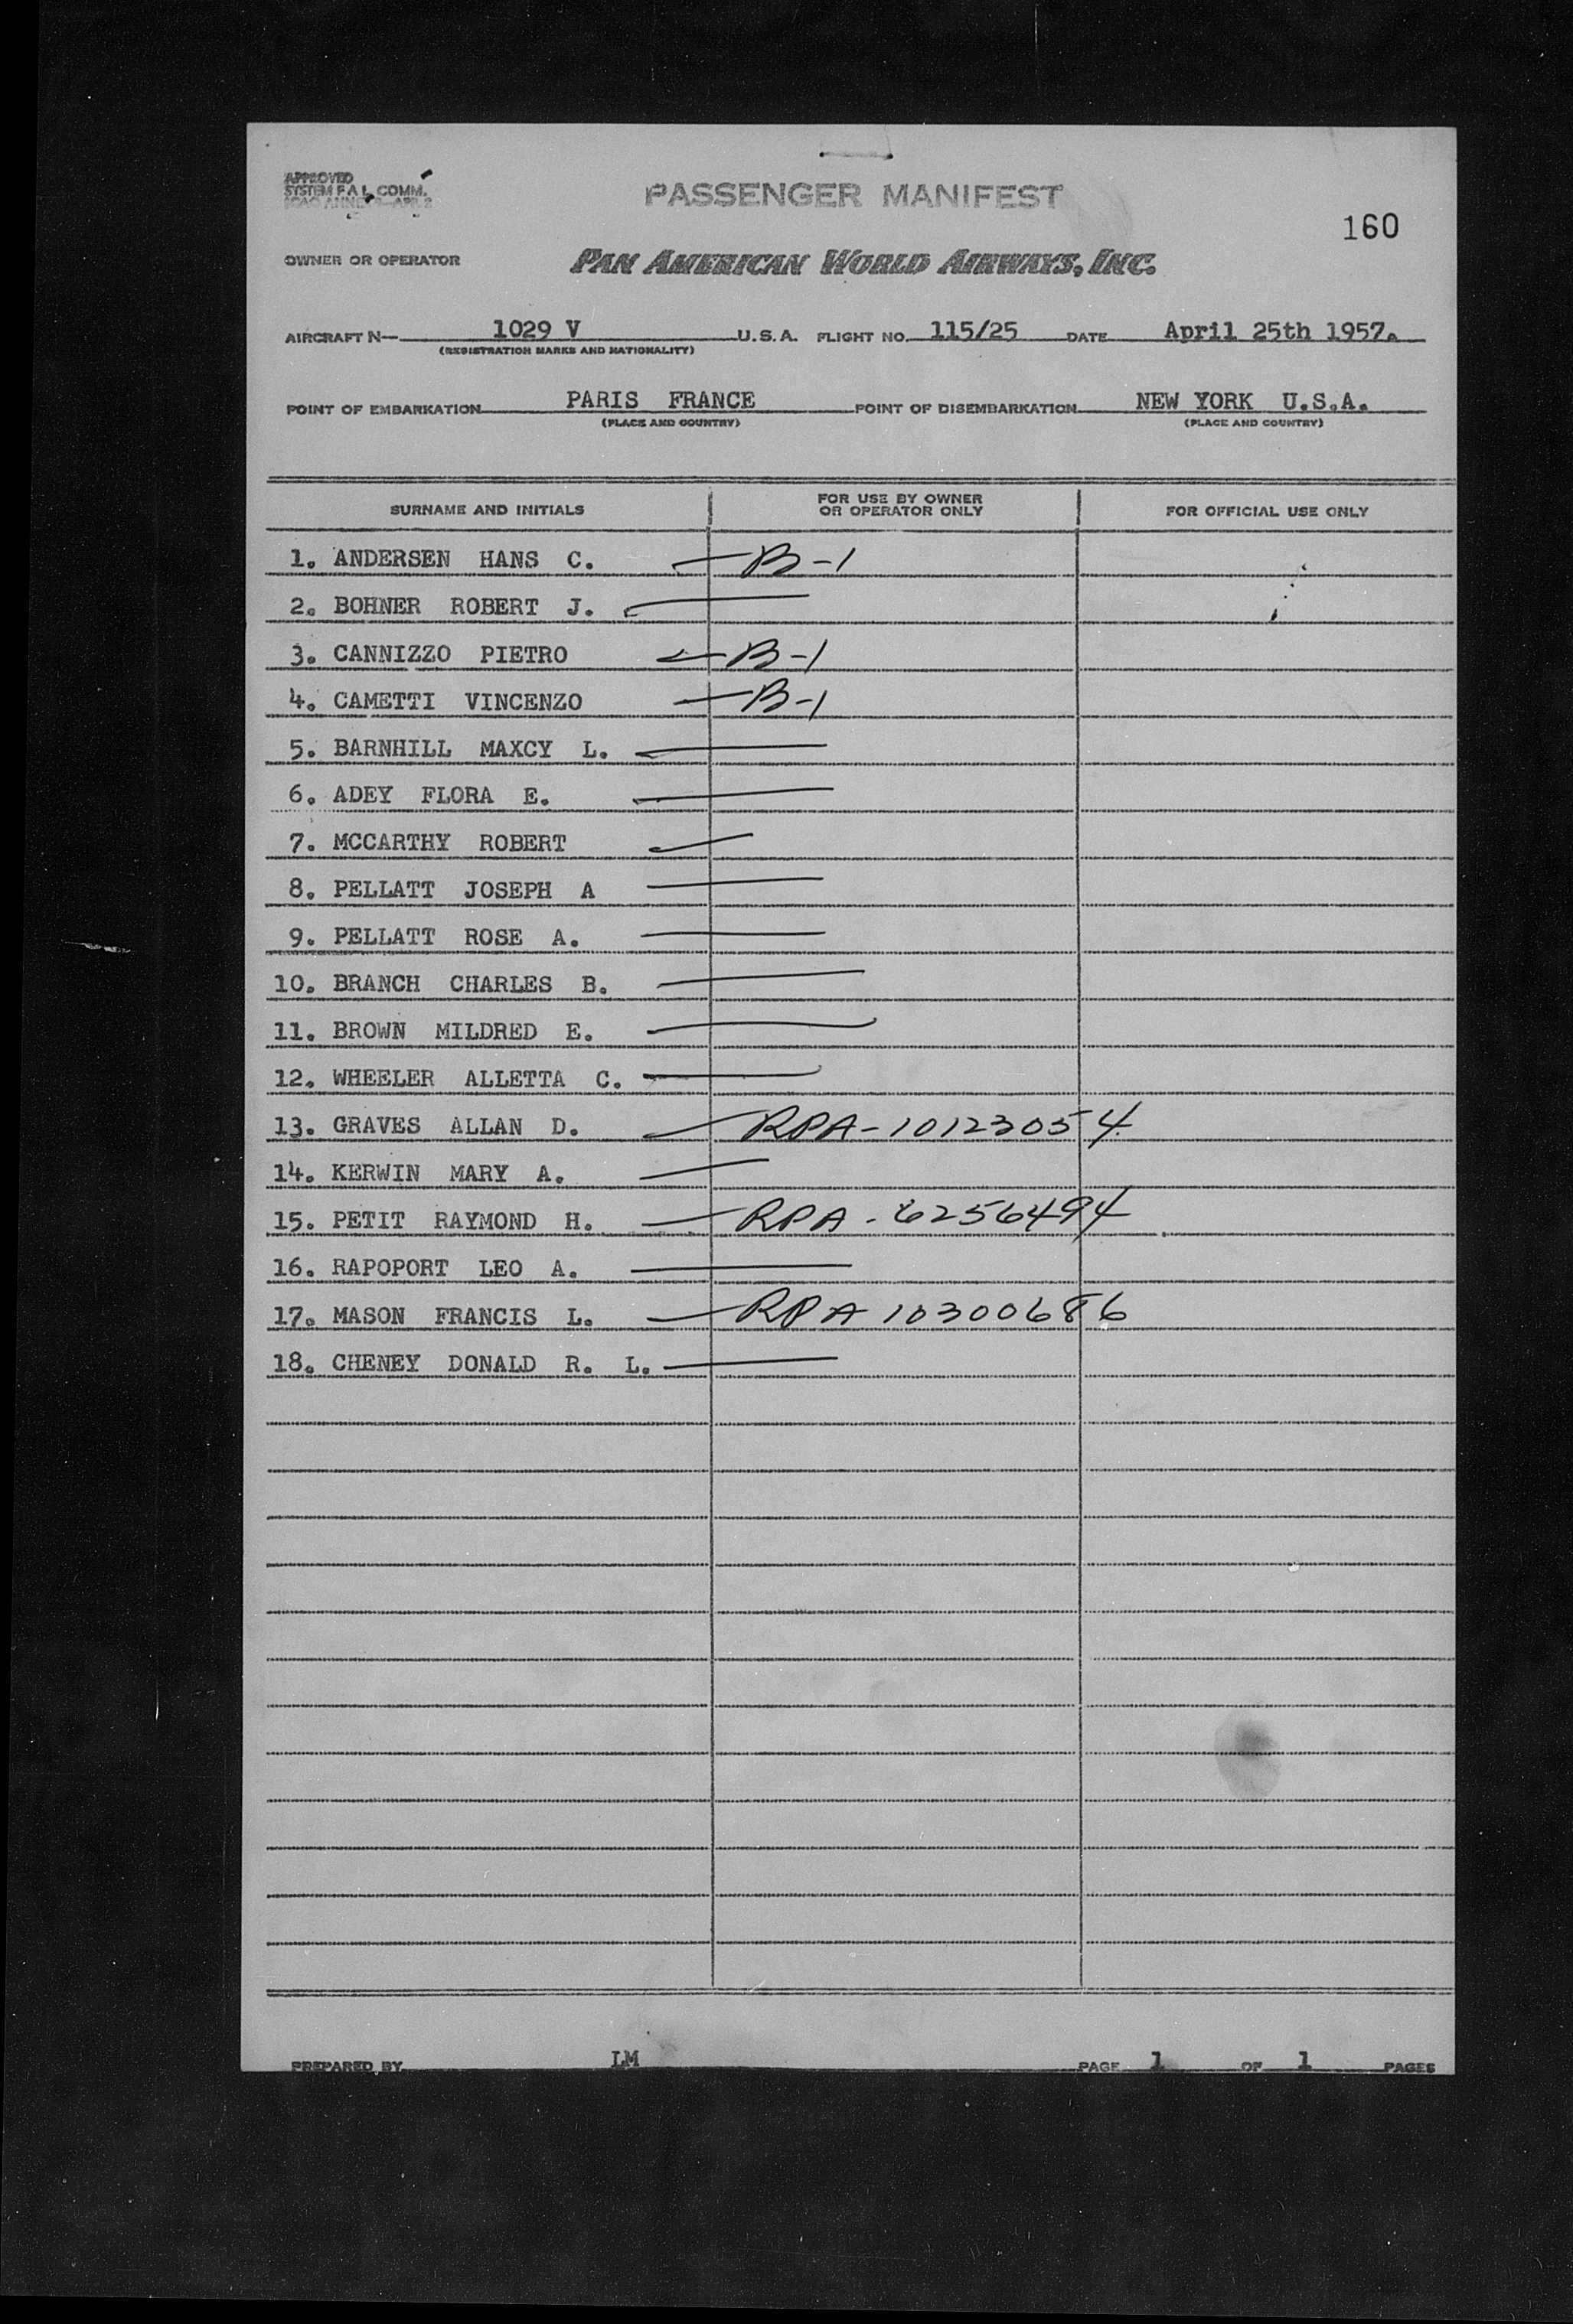 APPROVED
SYSTEM F A L COMM.
PASSENGER MANIFEST
160
OWNER OR OPERATOR PAN AMERICAN WORLD AIRWAYS, INC.
AIRCRAFT N— 1029 V U.S.A. FLIGHT NO. 115/25 DATE April 25th 1957.
(REGISTRATION MARKS AND NATIONALITY)
POINT OF EMBARKATION PARIS FRANCE POINT OF DISEMBARKATION NEW YORK U.S.A.
(PLACE AND COUNTRY) (PLACE AND COUNTRY)
SURNAME AND INITIALS FOR USE BY OWNER OR OPERATOR ONLY FOR OFFICIAL USE ONLY
1. ANDERSEN HANS C. B-1
2. BOHNER ROBERT J.
3. CANNIZZO PIETRO B-1
4. CAMETTI VINCENZO B-1
5. BARNHILL MAXCY L.
6. ADEY FLORA E.
7. MCCARTHY ROBERT
8. PELLATT JOSEPH A
9. PELLATT ROSE A.
10. BRANCH CHARLES B.
11. BROWN MILDRED E.
12. WHEELER ALLETTA C.
13. GRAVES ALLAN D. RPA-10123054
14. KERWIN MARY A.
15. PETIT RAYMOND H. RPA-6256494
16. RAPOPORT LEO A.
17. MASON FRANCIS L. RPA 10300686
18. CHENEY DONALD R. L.
PREPARED BY LM PAGE 1 OF 1 PAGES